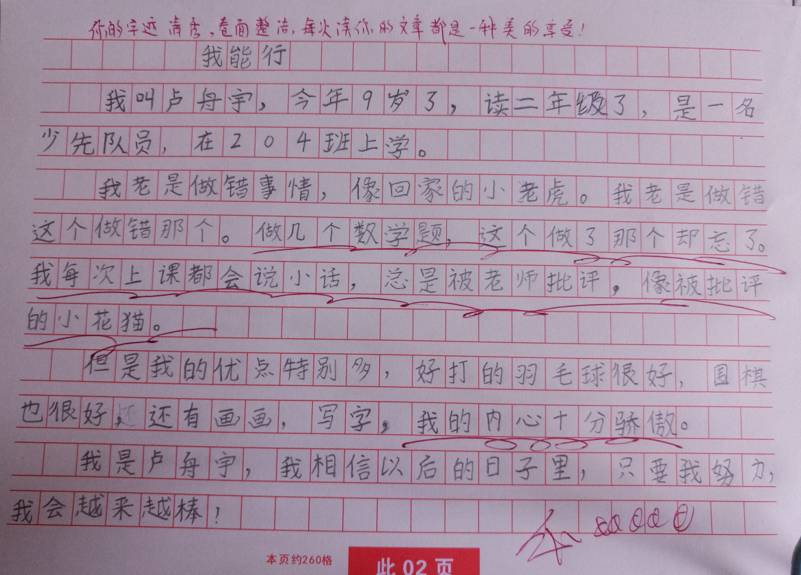 你的字迹清秀，卷面整洁，每次读你的文章都是一种美的享受！
我能行
我叫卢舟宇，今年9岁了，读二年级了，是一名
少先队员，在204班上学。
我老是做错事情，像回家的小老虎。我老是做错
这个做错那个。做几个数学题，这个做了那个却忘了。
我每次上课都会说小话，总是被老师批评，像被批评
的小花猫。
但是我的优点特别多，好打的羽毛球很好，围棋
也很好，还有画画，写字，我的内心十分骄傲。
我是卢舟宇，我相信以后的日子里，只要我努力，
我会越来越棒！
本页约260格
此02页